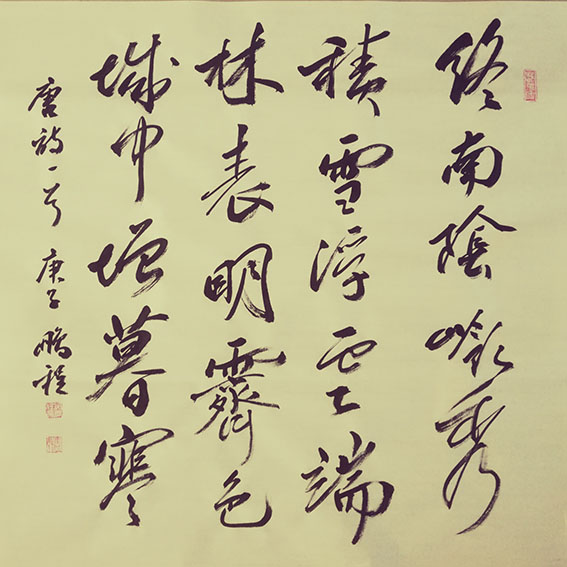 終南陰嶺秀
積雪浮雲端
林表明霽色
城中增暮寒
唐詩一首 庚子 鵬程